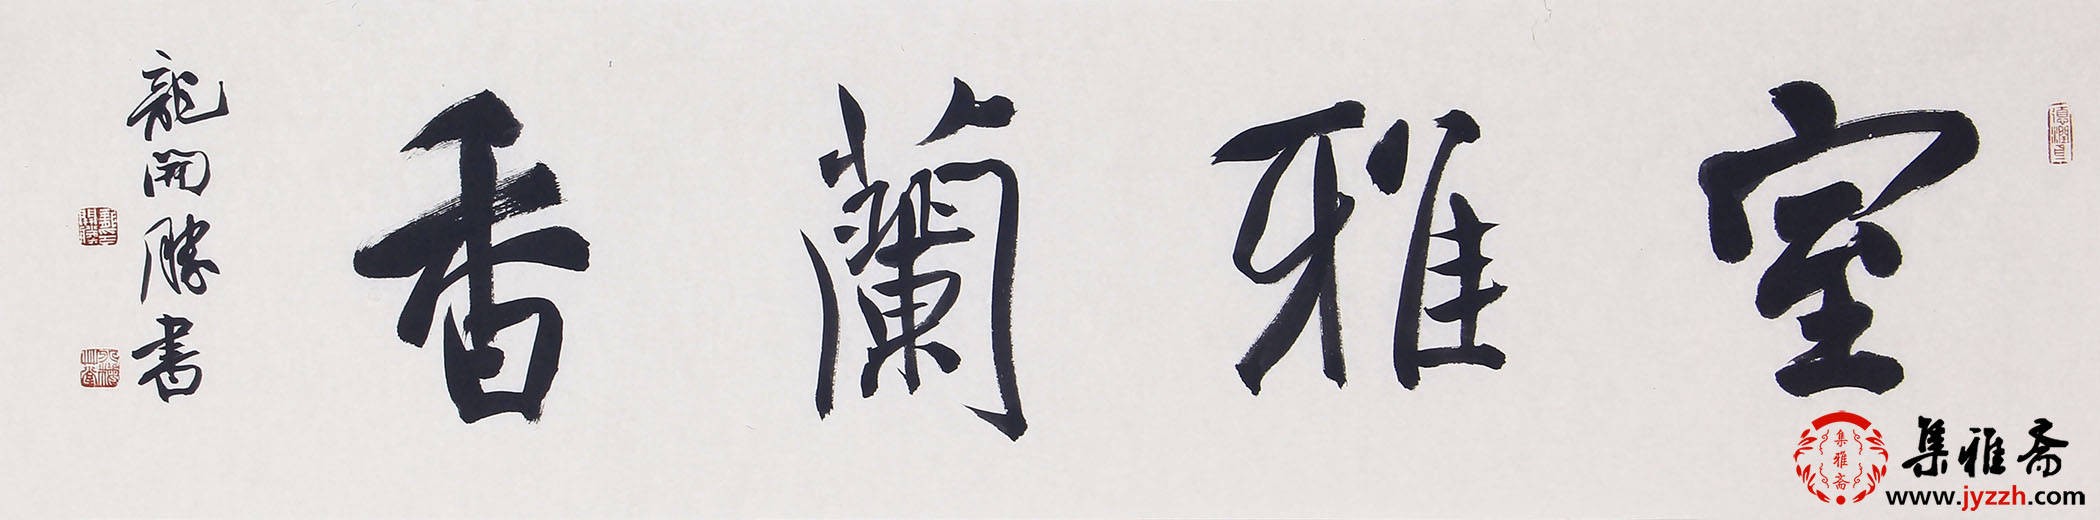 室雅蘭香
龍開勝書
集雅斋
集雅斋
www.jyzzh.com